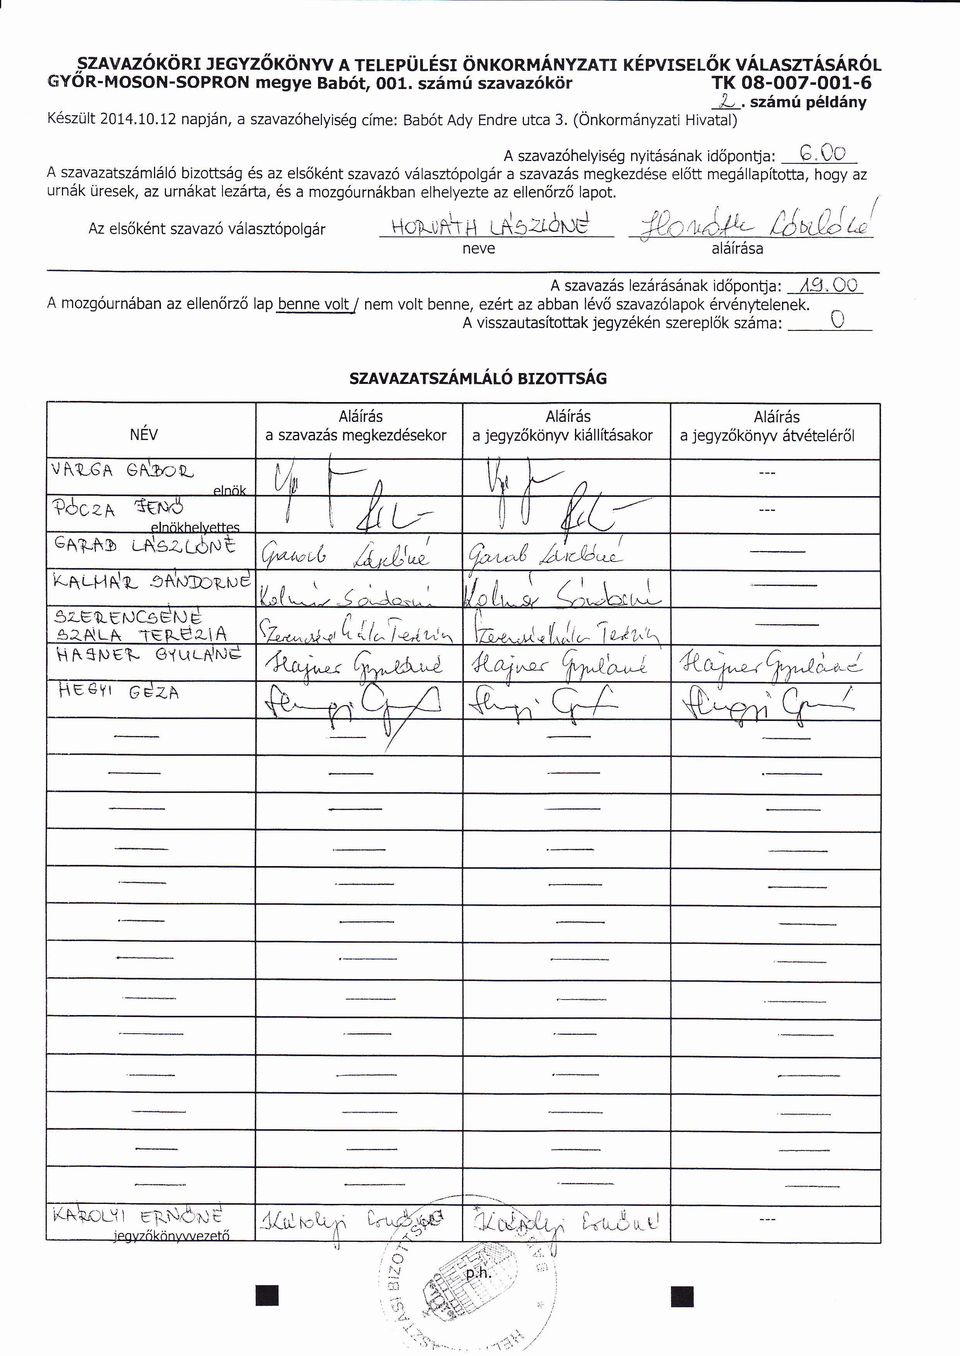 SZAVAZÓKÖRI JEGYZŐKÖNYV A TELEPÜLÉSI ÖNKORMÁNYZATI KÉPVISELŐK VÁLASZTÁSÁRÓL
GYŐR-MOSON-SOPRON megye Babót, 001. számú szavazókör TK 08-007-001-6
2. számú példány
Készült 2014.10.12 napján, a szavazóhelyiség címe: Babót Ady Endre utca 3. (Önkormányzati Hivatal)
A szavazóhelyiség nyitásának időpontja: 6.00
A szavazatszámláló bizottság és az elsőként szavazó választópolgár a szavazás megkezdése előtt megállapította, hogy az
urnák üresek, az urnákat lezárta, és a mozgóurnákban elhelyezte az ellenőrző lapot.
Az elsőként szavazó választópolgár HORVÁTH LÁSZLÓNÉ Horváth Lászlóné
neve aláírása
A szavazás lezárásának időpontja: 19.00
A mozgóurnában az ellenőrző lap benne volt / nem volt benne, ezért az abban lévő szavazólapok érvénytelenek.
A visszautasítottak jegyzékén szereplők száma: 0
SZAVAZATSZÁMLÁLÓ BIZOTTSÁG
NÉV Aláírás a szavazás megkezdésekor Aláírás a jegyzőkönyv kiállításakor Aláírás a jegyzőkönyv átvételéről
VARGA GÁBOR elnök ---
PÓCZA JENŐ elnökhelyettes ---
GARAB LÁSZLÓNÉ Garab Lászlóné Garab Lászlóné
KALMÁR SÁNDORNÉ Kalmár Sándorné Kalmár Sándorné
SZERENCSÉNÉ SZALA TERÉZIA
HAJNER GYULÁNÉ Hajner Gyuláné Hajner Gyuláné Hajner Gyuláné
HEGYI GÉZA Hegyi G Hegyi G Hegyi G
KÁROLYI ERNŐNÉ jegyzőkönyvvezető Károlyi Ernőné Károlyi Ernőné ---
p.h.